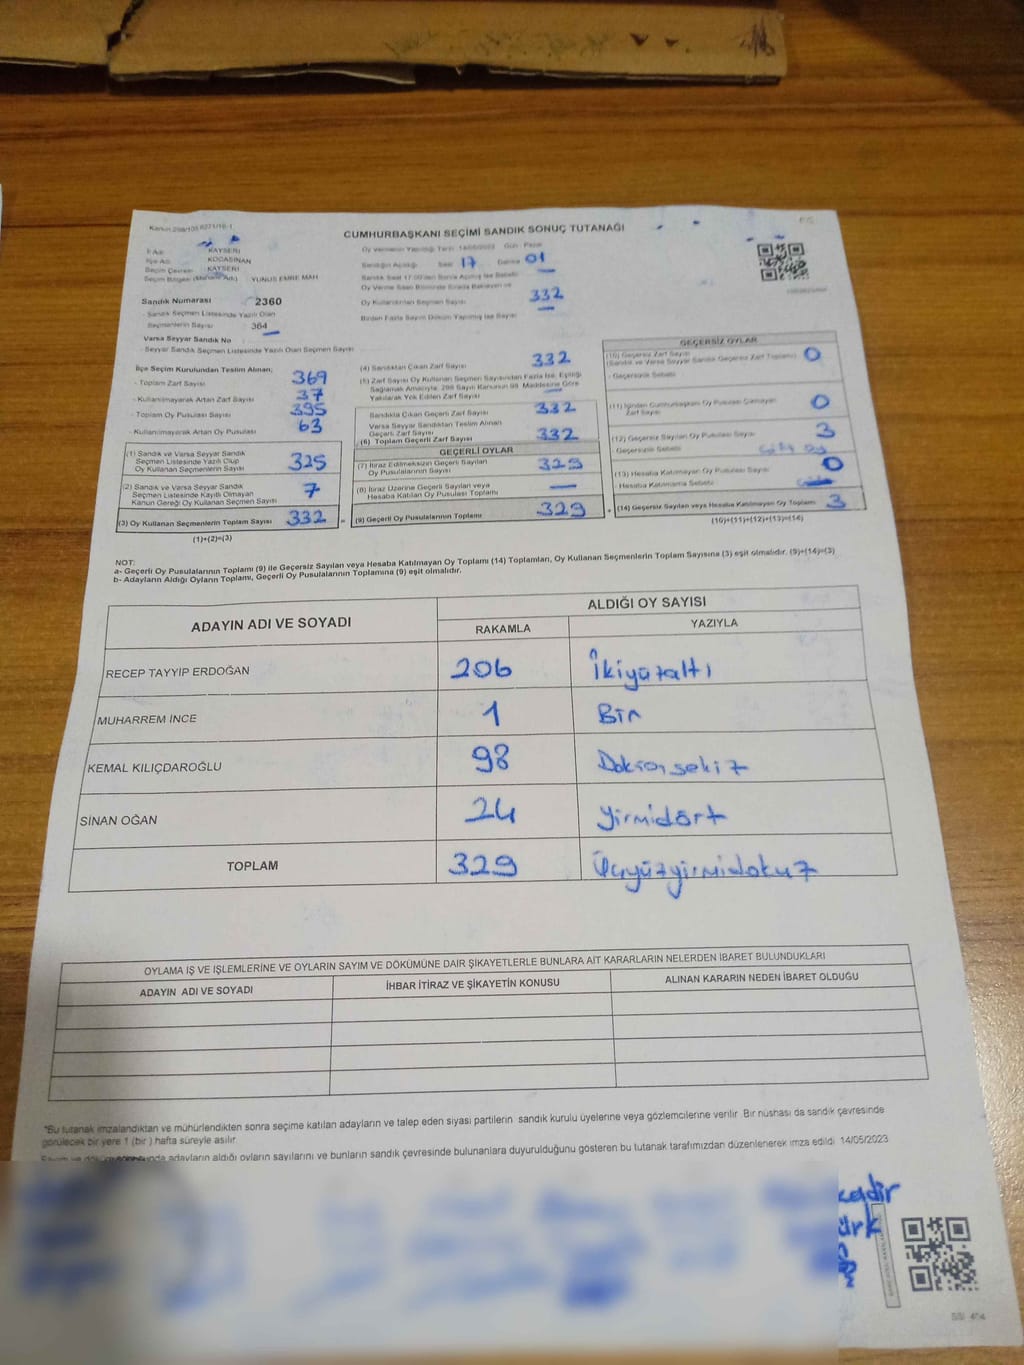 CUMHURBAŞKANI SEÇİMİ SANDIK SONUÇ TUTANAĞI
İl Adı: KAYSERİ
İlçe Adı: KOCASİNAN
Seçim Çevresi: KAYSERİ
Seçim Bölgesi (Mahalle Adı): YUNUS EMRE MAH
Saat 17 Dakika 01
Oy Kullanan Seçmen Sayısı 332
Birden Fazla Sayım Döküm Yapılmış İse Sayısı
Sandık Numarası 2360
Sandık Seçmen Listesinde Yazılı Olan
Seçmenlerin Sayısı 364
Varsa Seyyar Sandık No
Seyyar Sandık Seçmen Listesinde Yazılı Olan Seçmen Sayısı
İlçe Seçim Kurulundan Teslim Alınan;
- Toplam Zarf Sayısı 369
- Kullanılmayarak Artan Zarf Sayısı 37
- Toplam Oy Pusulası Sayısı 395
- Kullanılmayarak Artan Oy Pusulası 63
(1) Sandık ve Varsa Seyyar Sandık
Seçmen Listesinde Yazılı Olup
Oy Kullanan Seçmenlerin Sayısı 325
(2) Sandık ve Varsa Seyyar Sandık
Seçmen Listesinde Kayıtlı Olmayan
Kanun Gereği Oy Kullanan Seçmen Sayısı 7
(3) Oy Kullanan Seçmenlerin Toplam Sayısı 332
(1)+(2)=(3)
(4) Sandıktan Çıkan Zarf Sayısı 332
(5) Zarf Sayısı Oy Kullanan Seçmen Sayısından Fazla İse, Eşitliği
Sağlamak Amacıyla, 298 Sayılı Kanunun 98. Maddesine Göre
Yakılarak Yok Edilen Zarf Sayısı
Sandıkta Çıkan Geçerli Zarf Sayısı 332
Varsa Seyyar Sandıktan Teslim Alınan
Geçerli Zarf Sayısı
(6) Toplam Geçerli Zarf Sayısı 332
GEÇERLİ OYLAR
(7) İtiraz Edilmeksizin Geçerli Sayılan
Oy Pusulasının Sayısı 329
(8) İtiraz Üzerine Geçerli Sayılan veya
Hesaba Katılan Oy Pusulası Toplamı —
(9) Geçerli Oy Pusulalarının Toplamı 329
GEÇERSİZ OYLAR
(10) Geçersiz Zarf Sayısı
(Sandık ve Varsa Seyyar Sandık Geçersiz Zarf Toplamı) 0
- Geçersizlik Sebebi
(11) İçinden Cumhurbaşkanı Oy Pusulası Çıkmayan
Zarf Sayısı 0
(12) Geçersiz Sayılan Oy Pusulası Sayısı 3
- Geçersizlik Sebebi
(13) Hesaba Katılmayan Oy Pusulası Sayısı 0
- Hesaba Katılmama Sebebi
(14) Geçersiz Sayılan veya Hesaba Katılmayan Oy Toplamı 3
(10)+(11)+(12)+(13)=(14)
NOT:
a- Geçerli Oy Pusulalarının Toplamı (9) ile Geçersiz Sayılan veya Hesaba Katılmayan Oy Toplamı (14) Toplamları, Oy Kullanan Seçmenlerin Toplam Sayısına (3) eşit olmalıdır. (9)+(14)=(3)
b- Adayların Aldığı Oyların Toplamı, Geçerli Oy Pusulalarının Toplamına (9) eşit olmalıdır.
ADAYIN ADI VE SOYADI
ALDIĞI OY SAYISI
RAKAMLA YAZIYLA
RECEP TAYYİP ERDOĞAN 206 ikiyüzaltı
MUHARREM İNCE 1 Bir
KEMAL KILIÇDAROĞLU 98 Doksansekiz
SİNAN OĞAN 24 yirmidört
TOPLAM 329 Üçyüzyirmidokuz
OYLAMA İŞ VE İŞLEMLERİNE VE OYLARIN SAYIM VE DÖKÜMÜNE DAİR ŞİKAYETLERLE BUNLARA AİT KARARLARIN NELERDEN İBARET BULUNDUKLARI
ADAYIN ADI VE SOYADI İHBAR İTİRAZ VE ŞİKAYETİN KONUSU ALINAN KARARIN NEDEN İBARET OLDUĞU
*Bu tutanak imzalandıktan ve mühürlendikten sonra seçime katılan adayların ve talep eden siyasi partilerin sandık kurulu üyelerine veya gözlemcilerine verilir. Bir nüshası da sandık çevresinde
görülecek bir yere 1 (bir) hafta süreyle asılır.
adayların aldığı oyların sayılarını ve bunların sandık çevresinde bulunanlara duyurulduğunu gösteren bu tutanak tarafımızdan düzenlenerek imza edildi. 14/05/2023